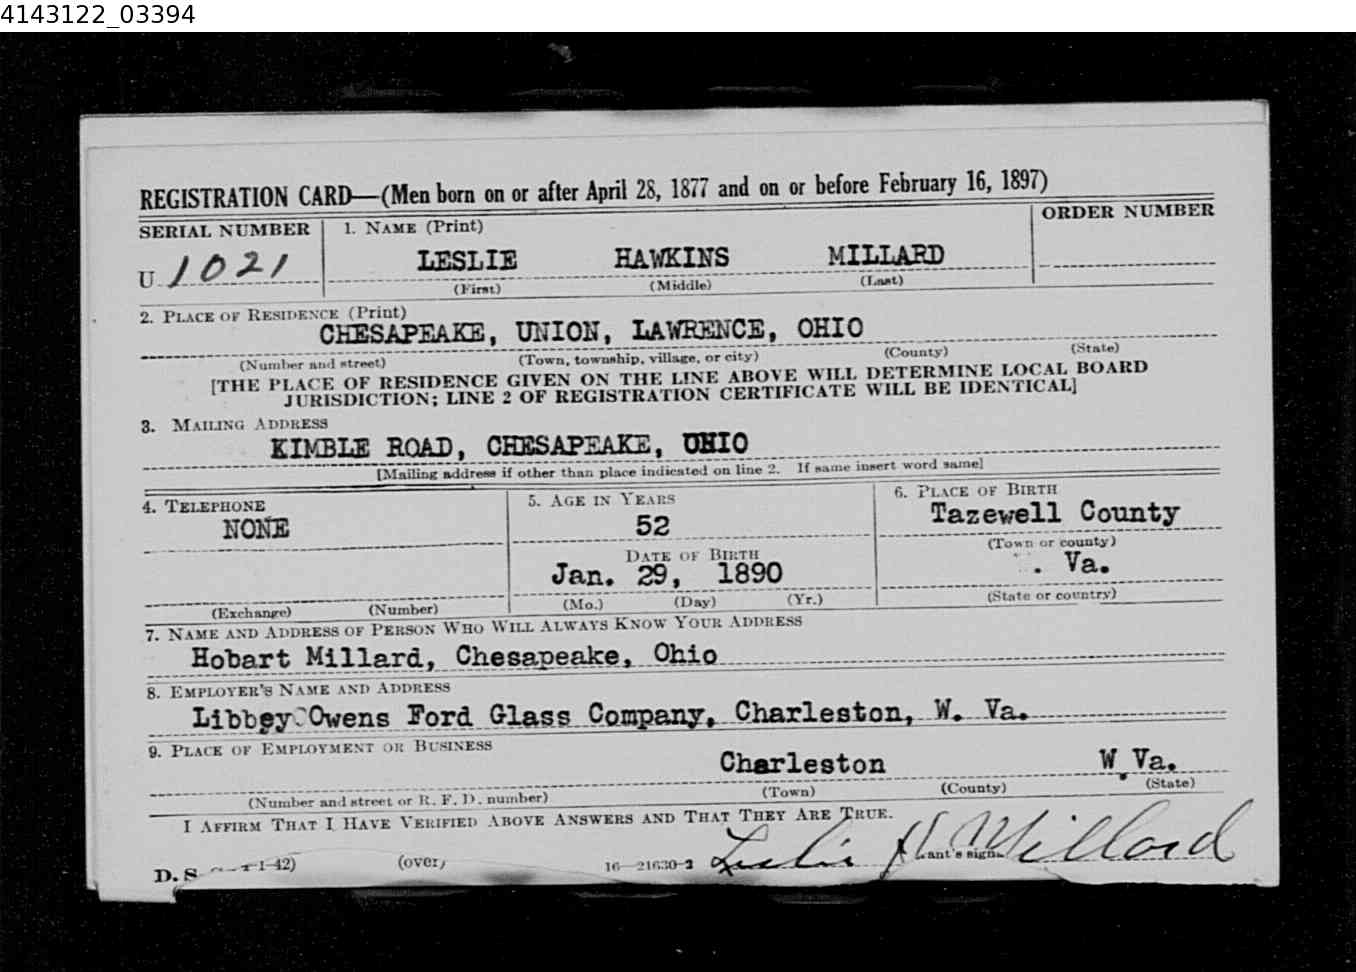 4143122_03394
REGISTRATION CARD—(Men born on or after April 28, 1877 and on or before February 16, 1897)
SERIAL NUMBER
1. NAME (Print)
ORDER NUMBER
U 1021
LESLIE HAWKINS MILLARD
(First) (Middle) (Last)
2. PLACE OF RESIDENCE (Print)
CHESAPEAKE, UNION, LAWRENCE, OHIO
(Number and street) (Town, township, village, or city) (County) (State)
[THE PLACE OF RESIDENCE GIVEN ON THE LINE ABOVE WILL DETERMINE LOCAL BOARD
JURISDICTION; LINE 2 OF REGISTRATION CERTIFICATE WILL BE IDENTICAL]
3. MAILING ADDRESS
KIMBLE ROAD, CHESAPEAKE, OHIO
[Mailing address if other than place indicated on line 2. If same insert word same]
4. TELEPHONE
NONE
(Exchange) (Number)
5. AGE IN YEARS
52
DATE OF BIRTH
Jan. 29, 1890
(Mo.) (Day) (Yr.)
6. PLACE OF BIRTH
Tazewell County
(Town or county)
. Va.
(State or country)
7. NAME AND ADDRESS OF PERSON WHO WILL ALWAYS KNOW YOUR ADDRESS
Hobart Millard, Chesapeake, Ohio
8. EMPLOYER'S NAME AND ADDRESS
Libbey Owens Ford Glass Company, Charleston, W. Va.
9. PLACE OF EMPLOYMENT OR BUSINESS
Charleston W. Va.
(Number and street or R. F. D. number) (Town) (County) (State)
I AFFIRM THAT I HAVE VERIFIED ABOVE ANSWERS AND THAT THEY ARE TRUE.
D. S. 1-42) (over) 16—21630-2 Leslie H Millard